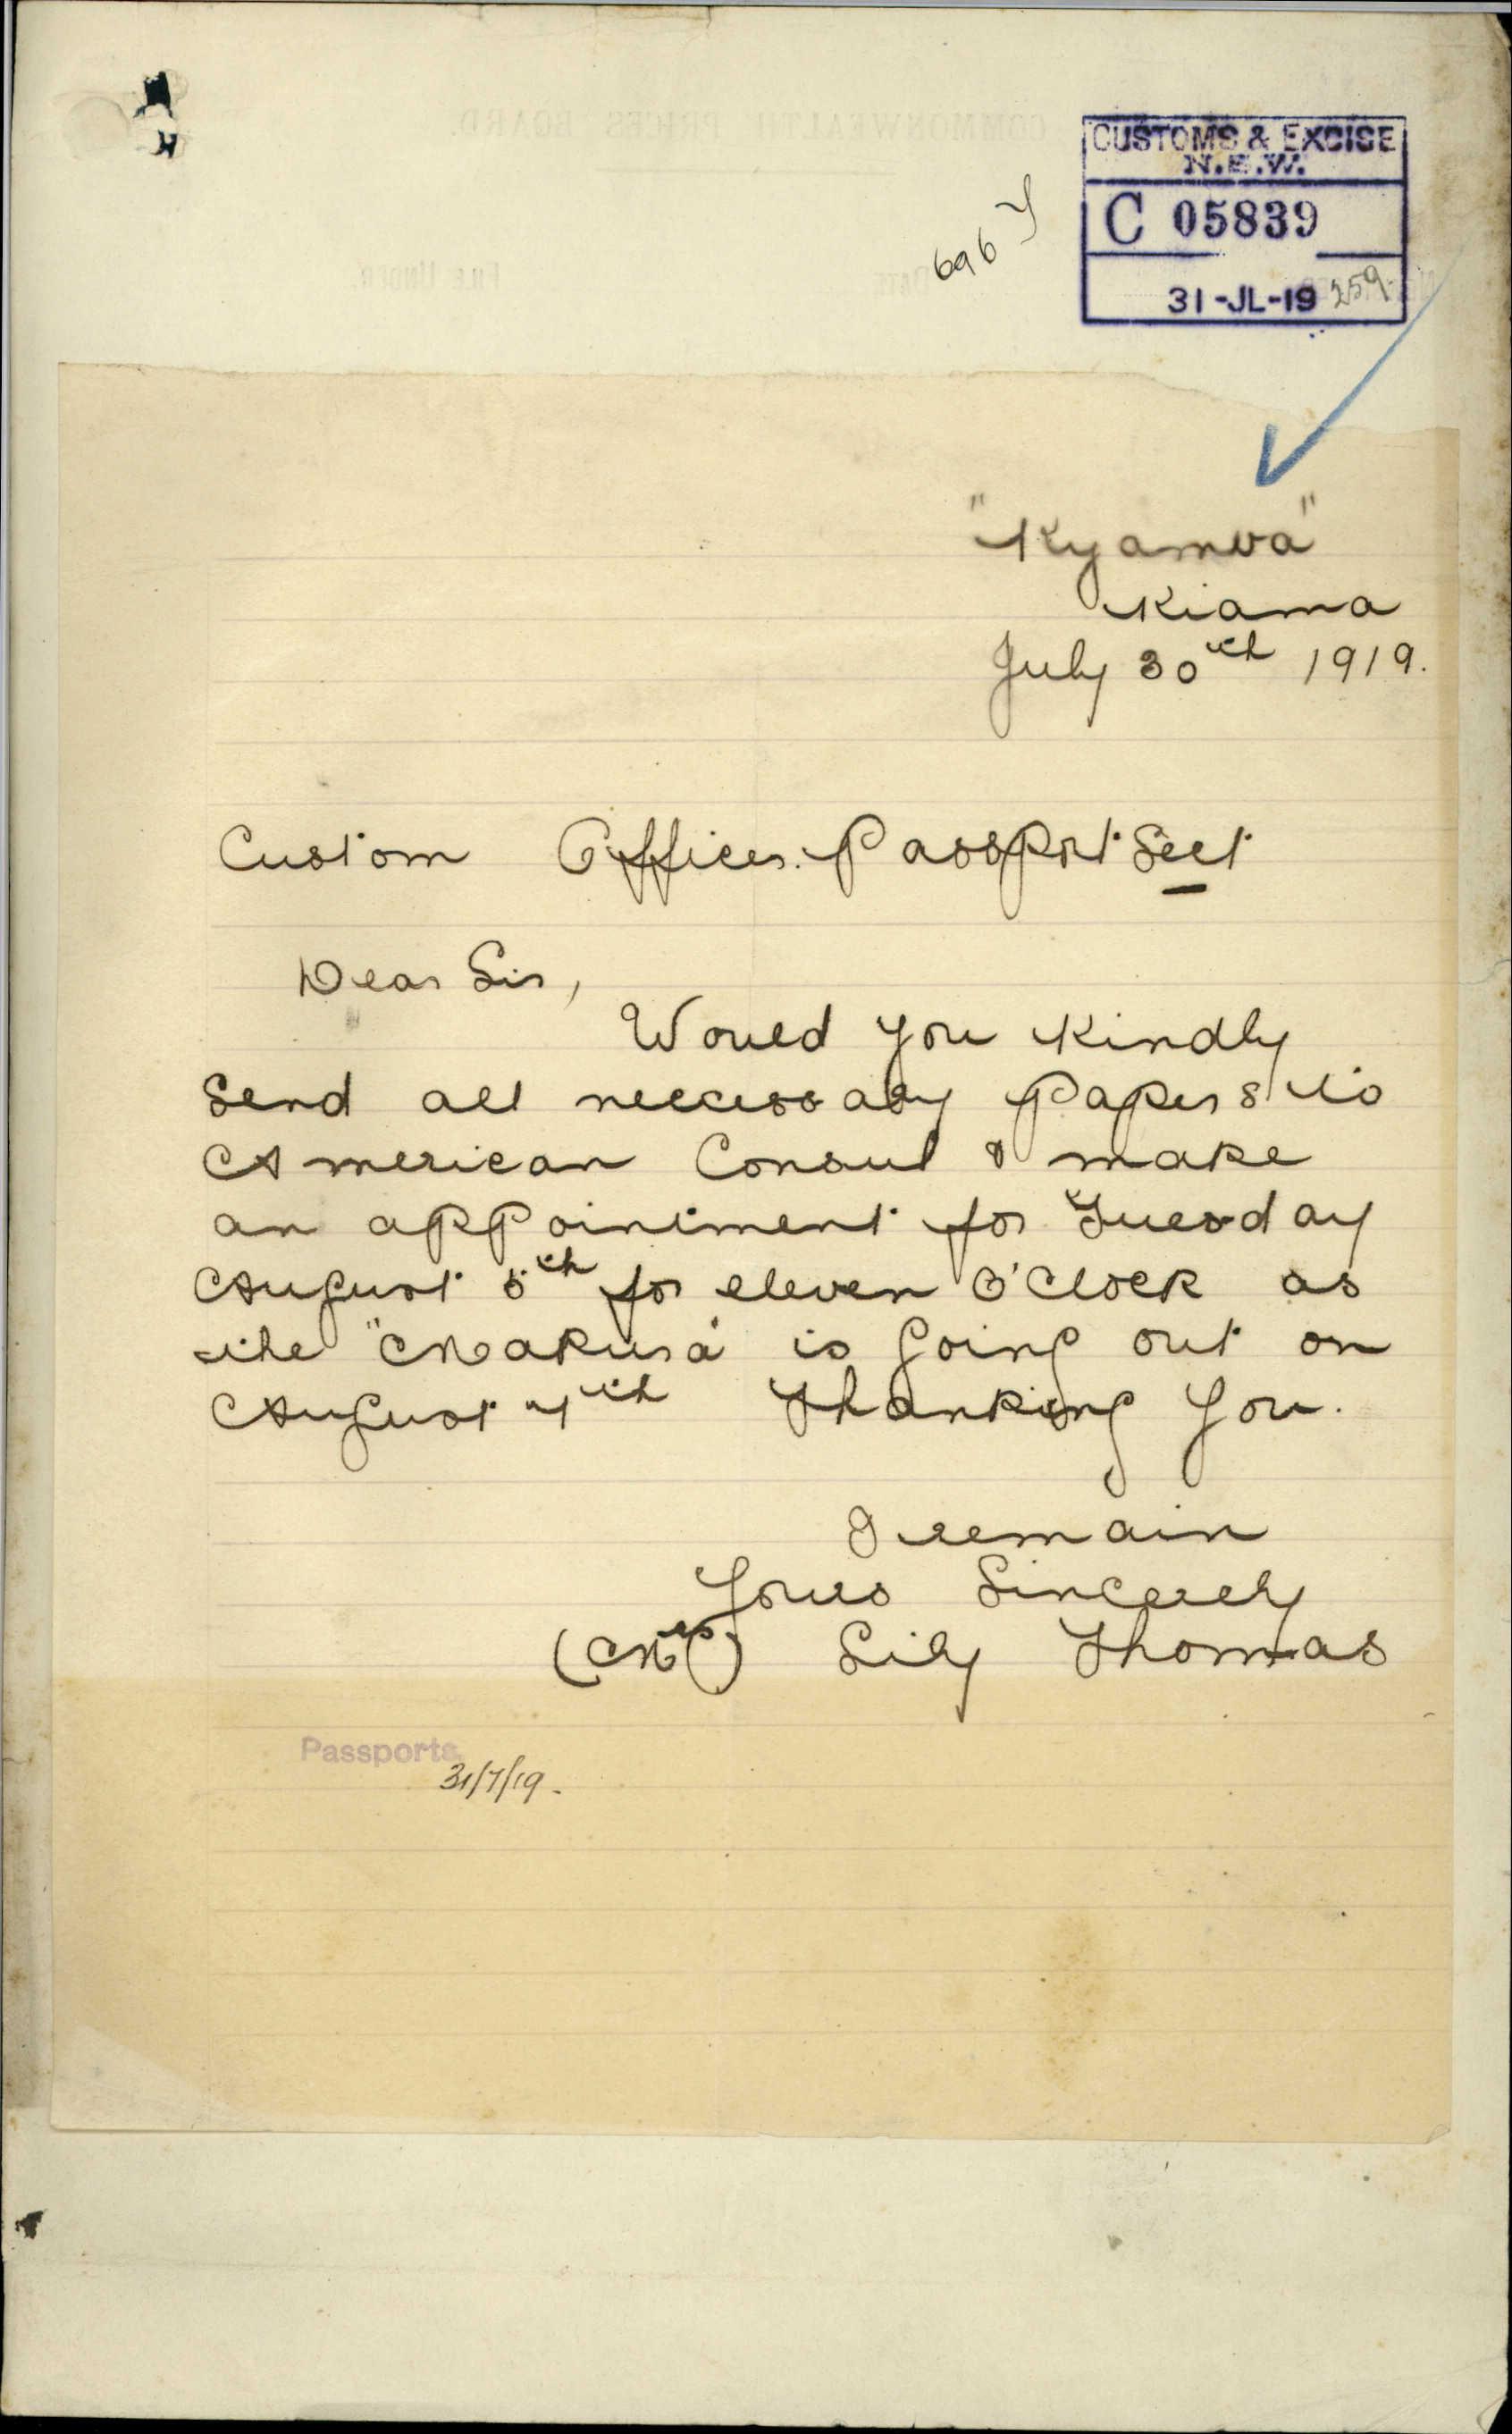 CUSTOMS & EXCISE
N.S.W.
C 05839
31-JL-19 259
696 Y
"Kyamba"
Kiama
July 30th 1919.
Custom Offices. Passport Sect
Dear Sir,
Would you Kindly
Send all neccessary Papers to
American Consul & make
an appointment for Tuesday
August 5th for eleven O'Clock as
the "Makura" is going out on
August 7th Thanking You.
I remain
Yours Sincerely
(Mrs) Lily Thomas
Passports
31/7/19.